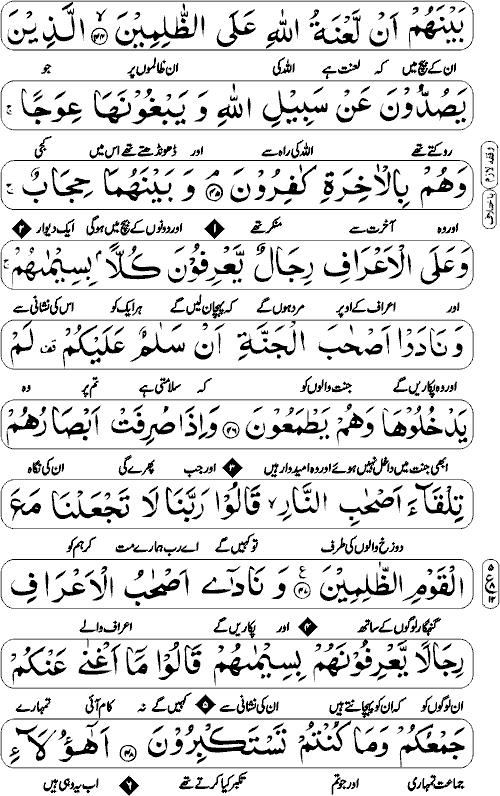 بَيْنَهُمْ اَنْ لَّعْنَةُ اللّٰهِ عَلَى الظّٰلِمِيْنَ ﴿۴۴﴾ الَّذِيْنَ
ان کے بیچ میں کہ لعنت ہے اللہ کی ان ظالموں پر جو
يَصُدُّوْنَ عَنْ سَبِيْلِ اللّٰهِ وَ يَبْغُوْنَهَا عِوَجًا ۚ
روکتے تھے اللہ کی راہ سے اور ڈھونڈھتے تھے اس میں کجی
وَهُمْ بِالْاٰخِرَةِ كٰفِرُوْنَ ﴿۴۵﴾ وَ بَيْنَهُمَا حِجَابٌ ۚ
اور وہ آخرت سے منکر تھے ۱ اور دونوں کے بیچ میں ہوگی ایک دیوار ۲
وَعَلَى الْاَعْرَافِ رِجَالٌ يَّعْرِفُوْنَ كُلًّاۢ بِسِيْمٰىهُمْ ۚ
اور اعراف کے اوپر مرد ہوں گے کہ پہچان لیں گے ہر ایک کو اس کی نشانی سے
وَ نَادَوْا اَصْحٰبَ الْجَنَّةِ اَنْ سَلٰمٌ عَلَيْكُمْ ۟ لَمْ
اور وہ پکاریں گے جنت والوں کو کہ سلامتی ہے تم پر وہ
يَدْخُلُوْهَا وَهُمْ يَطْمَعُوْنَ ﴿۴۶﴾ وَاِذَا صُرِفَتْ اَبْصَارُهُمْ
ابھی جنت میں داخل نہیں ہوئے اور وہ امیدوار ہیں ۳ اور جب پھرے گی ان کی نگاہ
تِلْقَآءَ اَصْحٰبِ النَّارِ ۙ قَالُوْا رَبَّنَا لَا تَجْعَلْنَا مَعَ
دوزخ والوں کی طرف تو کہیں گے اے رب ہمارے مت کر ہم کو
الْقَوْمِ الظّٰلِمِيْنَ ﴿۴۷﴾ وَ نَادٰۤى اَصْحٰبُ الْاَعْرَافِ
گنہگار لوگوں کے ساتھ ۴ اور پکاریں گے اعراف والے
رِجَالًا يَّعْرِفُوْنَهُمْ بِسِيْمٰىهُمْ قَالُوْا مَاۤ اَغْنٰى عَنْكُمْ
ان لوگوں کو کہ ان کو پہچانتے ہیں ان کی نشانی سے ۵ کہیں گے نہ کام آئی تمہارے
جَمْعُكُمْ وَمَا كُنْتُمْ تَسْتَكْبِرُوْنَ ﴿۴۸﴾ اَهٰۤؤُلَآءِ
جماعت تمہاری اور جو تم تکبر کیا کرتے تھے ۶ اب یہ وہی ہیں